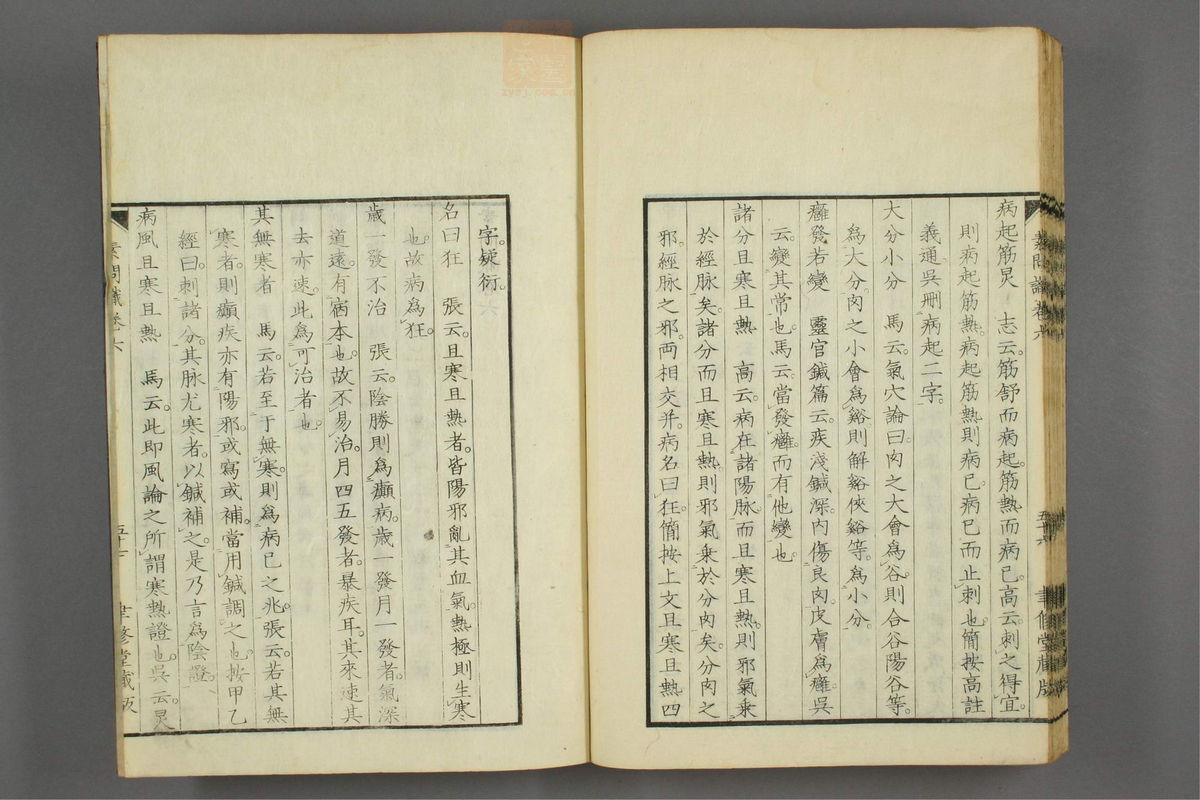 病起筋炅　志云。筋舒而病起。筋熱而病已。高云。刺之得宜。
則病起筋熱。病起筋熱則病已。病已而止刺也。簡按高註
義通。吳刪病起二字。
大分小分　馬云。氣穴論曰。肉之大會爲谷。則合谷陽谷等。
爲大分。肉之小會爲谿。則解谿俠谿等。爲小分。
癰發若變　靈官鍼篇云。疾淺鍼深。内傷良肉。皮膚爲癰。吳
云。變其常也。馬云。當發癰。而有他變也。
諸分且寒且熱　高云。病在諸陽脉。而且寒且熱。則邪氣乘
於經脉矣。諸分而且寒且熱。則邪氣乘於分肉矣。分肉之
邪。經脉之邪。両相交并。病名曰狂。簡按上文且寒且熱四
素問識卷六
五十六
聿修堂藏版
字。疑衍。
名曰狂　張云。且寒且熱者。皆陽邪亂其血氣。熱極則生寒
也。故病爲狂。
歲一發不治　張云。陰勝則爲癲病。歲一發月一發者。氣深
道遠。有宿本也。故不易治。月四五發者。暴疾耳。其來速其
去亦速。此爲可治者也。
其無寒者　馬云。若至于無寒。則爲病已之兆。張云。若其無
寒者。則癲疾亦有陽邪。或寫或補。當用鍼調之也。按甲乙
經曰。刺諸分。其脉尤寒者。以鍼補之。是乃言爲陰證。
病風且寒且熱　馬云。此即風論之所謂寒熱證也。吳云。炅
素問識卷六
五十七
聿修堂藏版